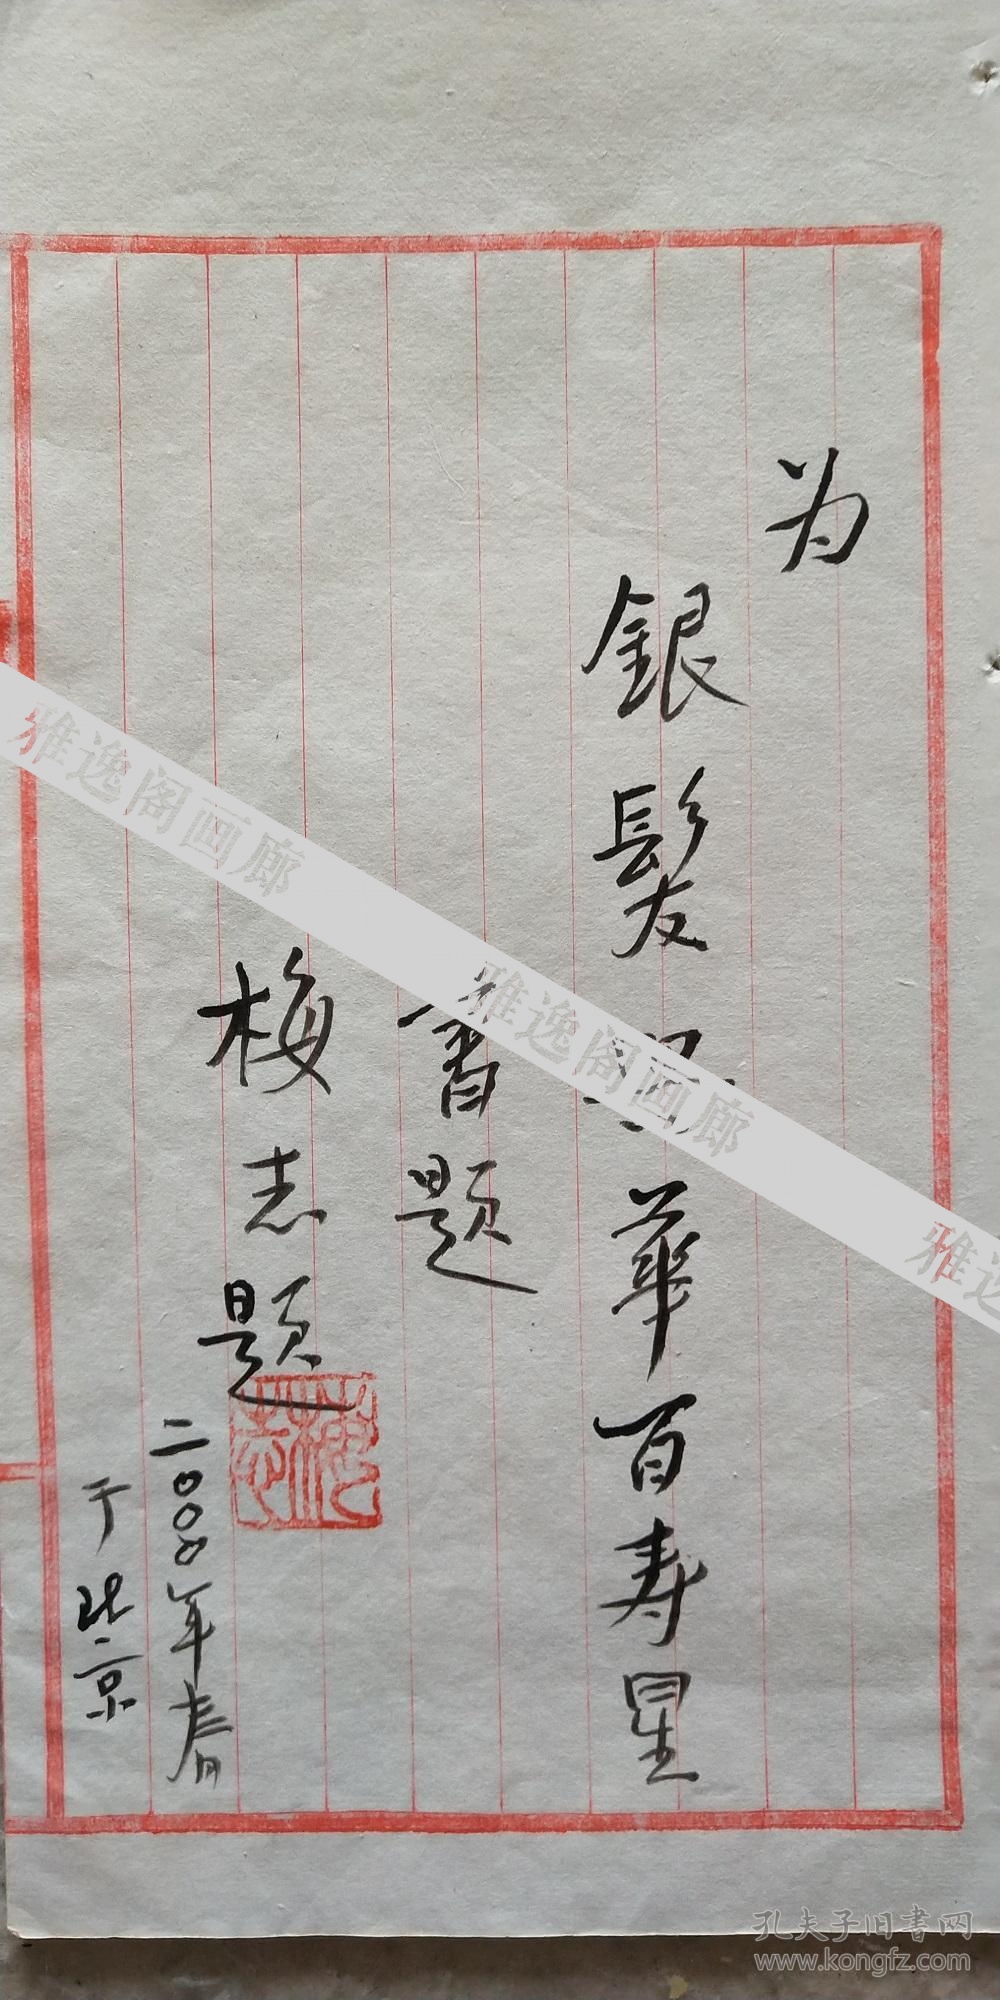 为
銀髮華百寿星
書題
梅志題
二〇〇〇年春
于北京
梅志
雅逸阁画廊
雅逸阁画廊
雅逸
孔夫子旧书网
www.kongfz.com